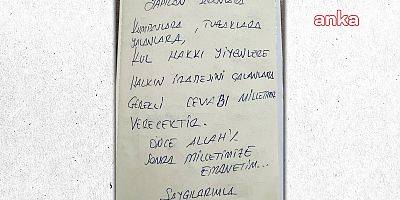 anka
YAPILAN
KUMPASLARA, TUZAKLARA
YALANLARA,
KUL HAKKI YİYENLERE
HALKIN İRADESİNİ ÇALANLARA
GEREKLİ CEVABI MİLLETİMİZ
VERECEKTİR.
ÖNCE ALLAH'A
SONRA MİLLETİMİZE
EMANETİM...
SAYGILARIMLA